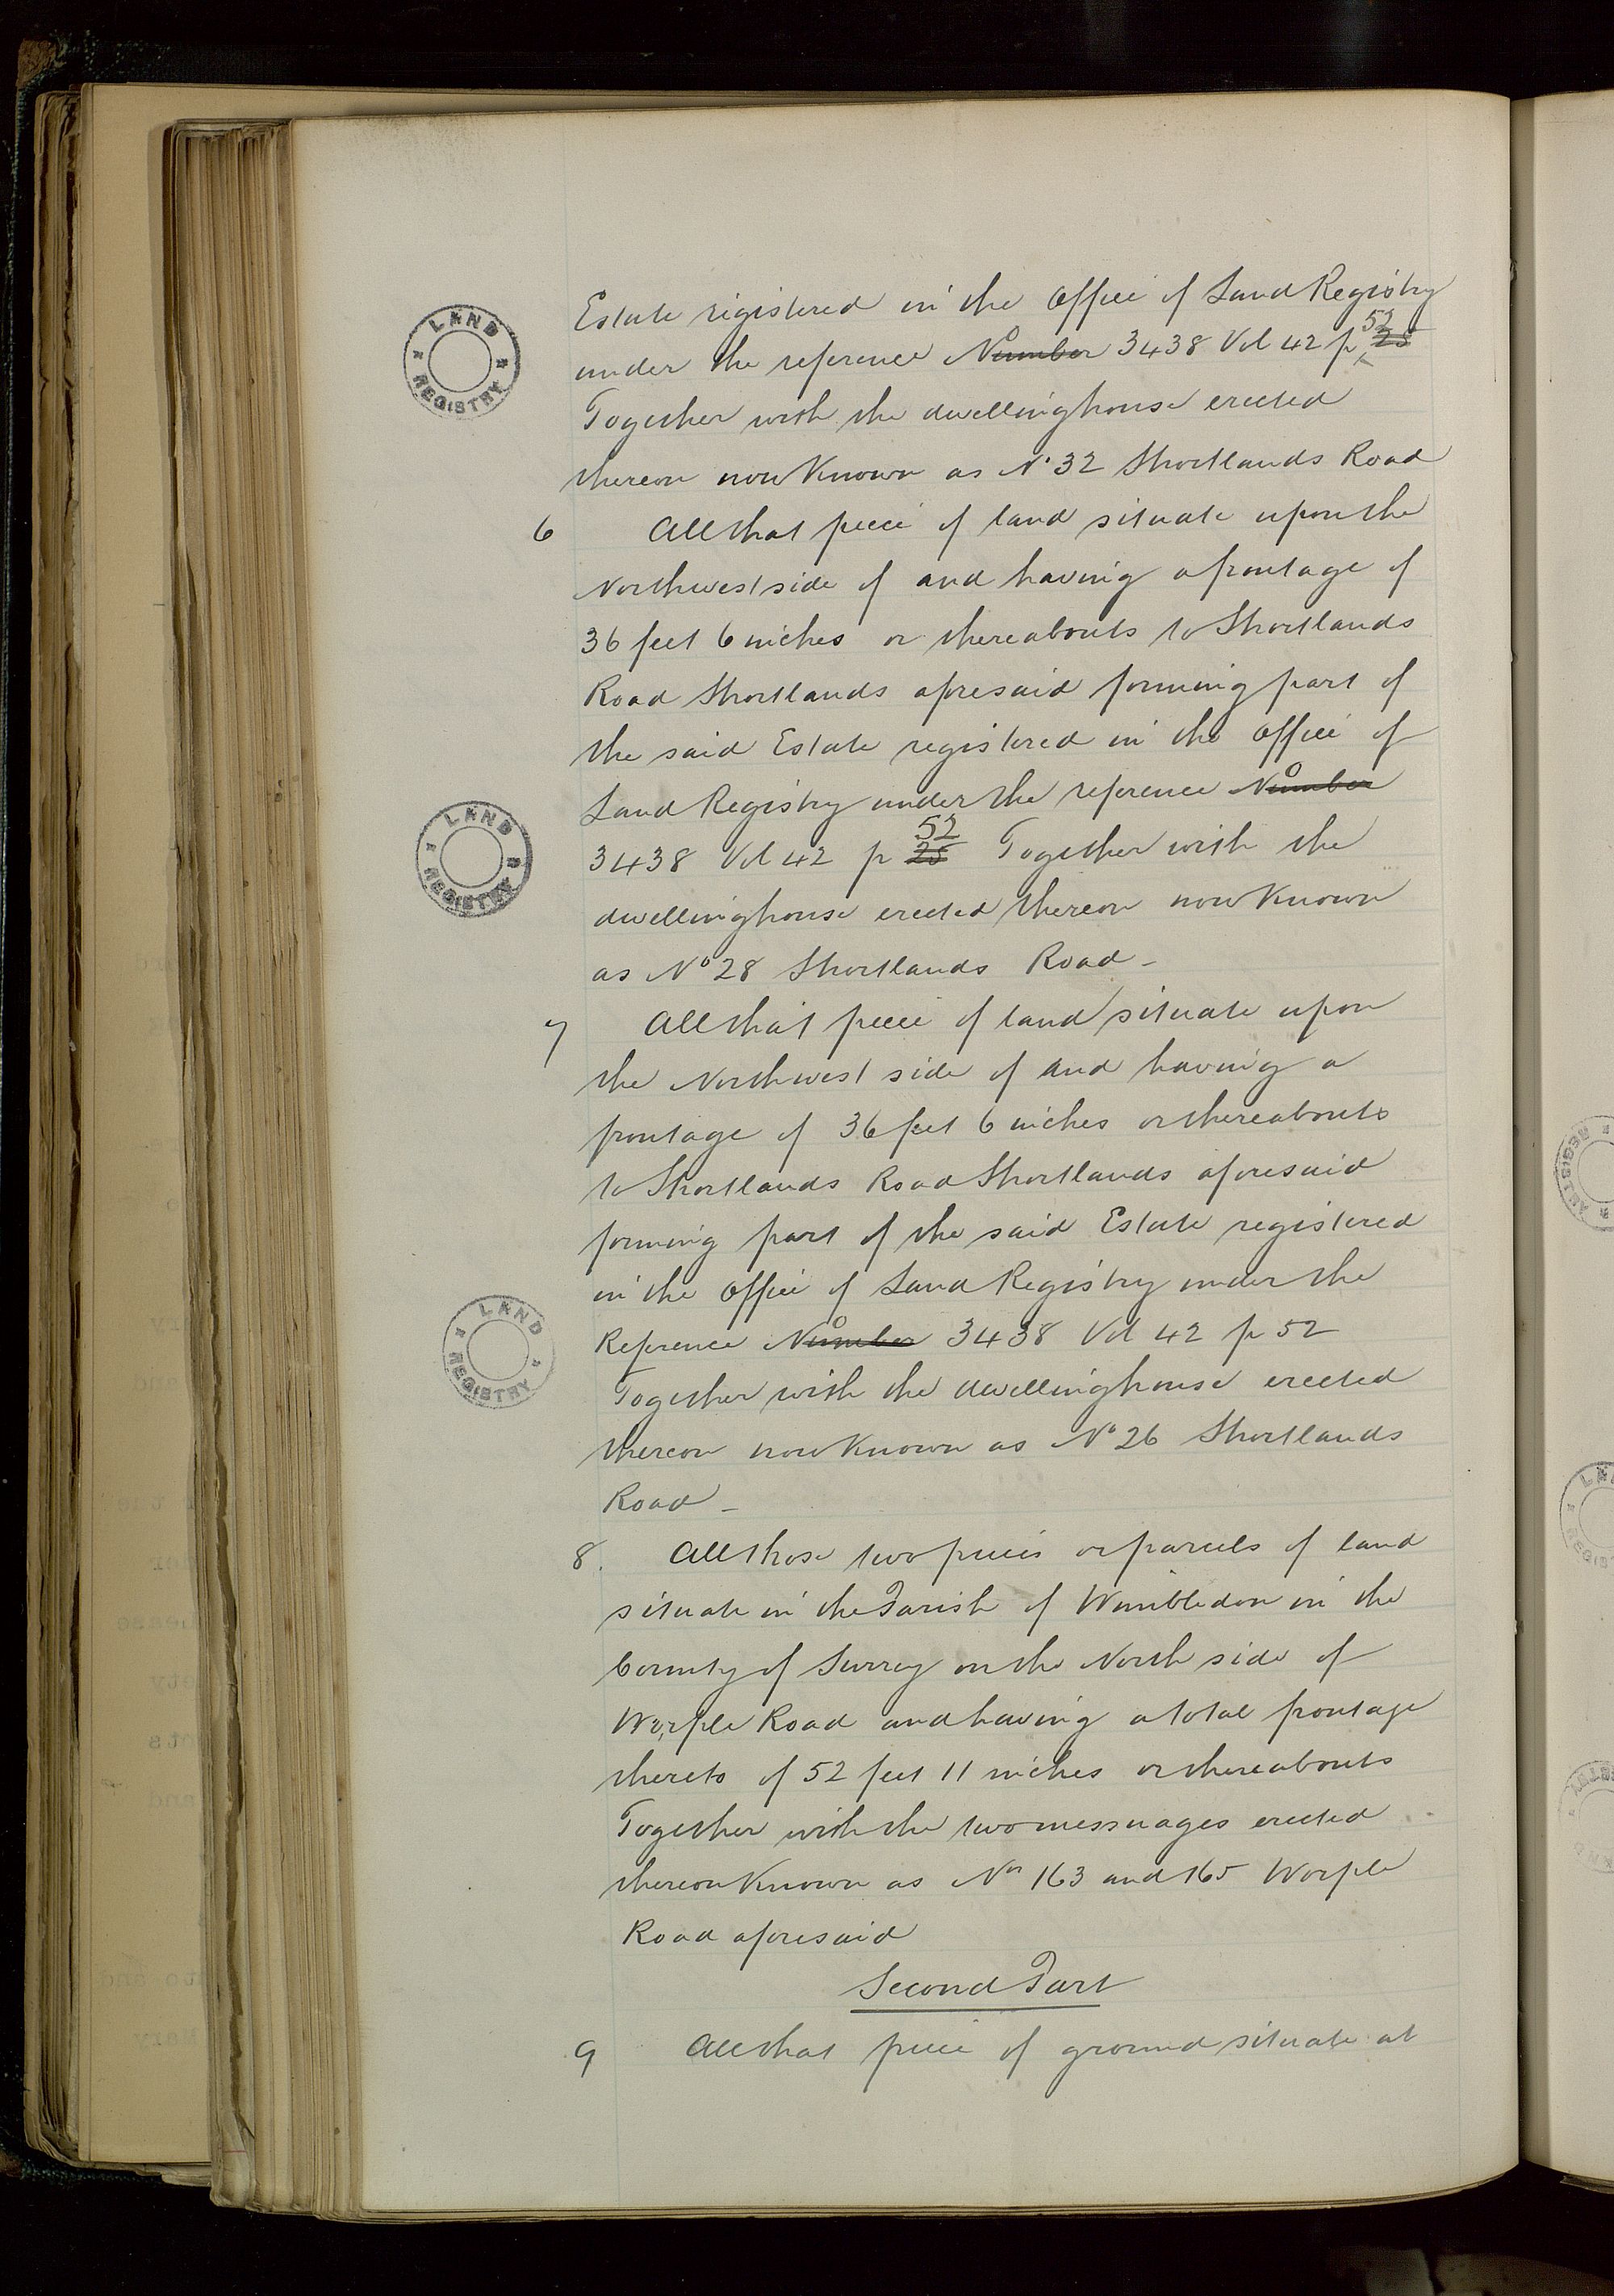 Estate registered in the Office of Land Registry
under the reference No Number 3438 Vol 42 p 52 25
Together with the dwellinghouse erected
thereon now Known as No 32 Shortlands Road
6 All that piece of land situate upon the
Northwest side of and having a frontage of
36 feet 6 inches or thereabouts to Shortlands
Road Shortlands aforesaid forming part of
the said Estate registered in the Office of
Land Registry under the reference No Number
3438 Vol 42 p 52 25 Together with the
dwellinghouse erected thereon now Known
as No 28 Shortlands Road -
7 All that piece of land situate upon
the Northwest side of and having a
frontage of 36 feet 6 inches or thereabouts
to Shortlands Road Shortlands aforesaid
forming part of the said Estate registered
in the Office of Land Registry under the
Reference No Number 3438 Vol 42 p 52
Together with the dwellinghouse erected
thereon now Known as No 26 Shortlands
Road -
8. All those two pieces or parcels of land
situate in the Parish of Wimbledon in the
County of Surrey on the North side of
Worple Road and having a total frontage
thereto of 52 feet 11 inches or thereabouts
Together with the two messuages erected
thereon Known as Nos 163 and 165 Worple
Road aforesaid
Second Part
9 All that piece of ground situate at
LAND REGISTRY
LAND REGISTRY
LAND REGISTRY